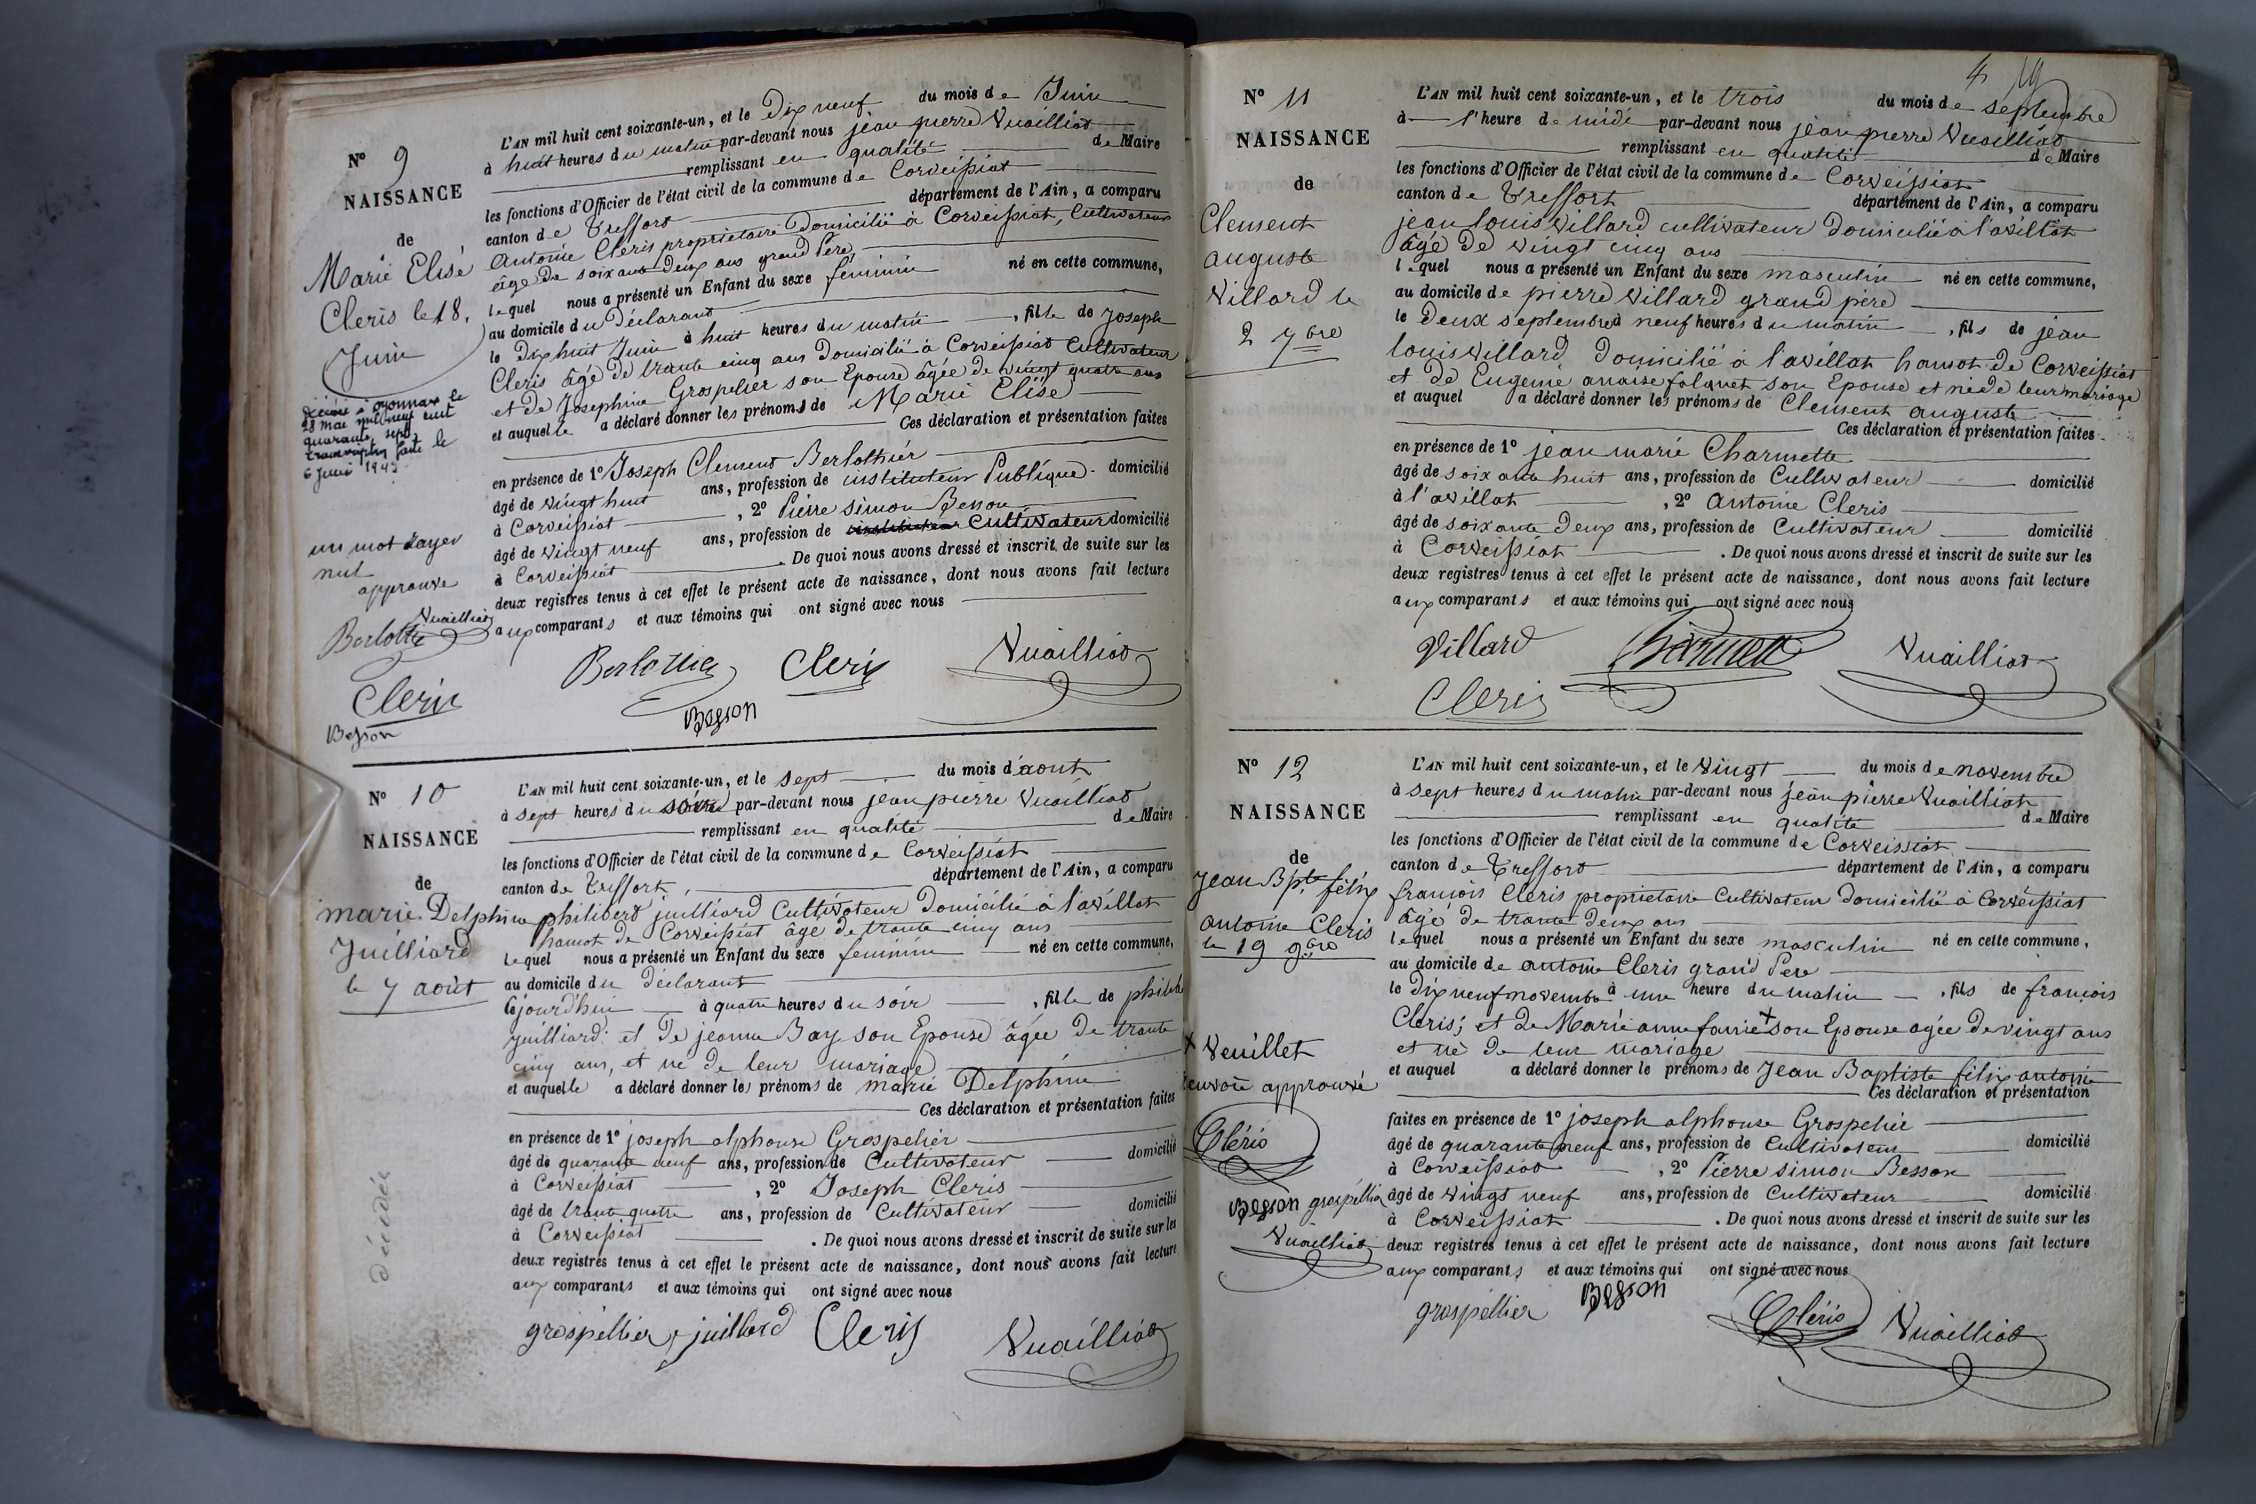 N° 9
NAISSANCE
de
Marie Elisé
Cleris le 18.
Juin
Décédée à Oyonnax le
28 Mai mil neuf cent
quarante sept
transcription faite le
6 Juin 1947
un mot rayer
nul
approuve
Vuailliat
Berlottie
Cleris
Besson
L'AN mil huit cent soixante-un, et le Dix neuf du mois de Juin
à huit heures du matin par-devant nous jean pierre Vuailliat
remplissant en qualité de Maire
les fonctions d'Officier de l'état civil de la commune de Corveissiat
canton de Treffort département de l'Ain, a comparu
Antoine Cleris proprietaire Domicilié à Corveissiat, Cultivateur
âgé de soixante Deux ans grand Père,
lequel nous a présenté un Enfant du sexe féminin né en cette commune,
au domicile du Déclarant
le Dix huit Juin à huit heures du matin, fille de Joseph
Cleris âgé de trante cinq ans Domicilié à Corveissiat Cultivateur
et de Josephine Grospelier son Epouse âgée de vingt quatre ans
et auquelle a déclaré donner les prénoms de Marie Elise
Ces déclaration et présentation faites
en présence de 1° Joseph Clement Berlothiér
âgé de vingt huit ans, profession de instituteur Publique domicilié
à Corveissiat, 2° Pierre simon Besson
âgé de vingt neuf ans, profession de instituteur Cultivateur domicilié
à Corveissiat. De quoi nous avons dressé et inscrit de suite sur les
deux registres tenus à cet effet le présent acte de naissance, dont nous avons fait lecture
aux comparants et aux témoins qui ont signé avec nous
Berlottie Cleris Vuailliat
Besson
N° 10
NAISSANCE
de
marie Delphine
Juilliard
le 7 août
décédée
L'AN mil huit cent soixante-un, et le sept du mois d'aout
à sept heures du soire par-devant nous jean pierre Vuailliat
remplissant en qualité de Maire
les fonctions d'Officier de l'état civil de la commune de Corveissiat
canton de Treffort, département de l'Ain, a comparu
philiberd juilliard Cultivateur Domicilié à l'avillat
hamot de Corveissiat âgé de trante cinq ans
lequel nous a présenté un Enfant du sexe feminin né en cette commune,
au domicile du Déclarant
cejourd'hui à quatre heures du soir, fille de philib
juilliard: et De jeanne Bay son Epouse âgée De trante
cinq ans, et né de leur mariage
et auquelle a déclaré donner les prénoms de marie Delphine
Ces déclaration et présentation faites
en présence de 1° joseph alphonse Grospeliér
âgé de quarante neuf ans, profession de Cultivateur domicilié
à Corveissiat, 2° Joseph Cleris
âgé de trante quatre ans, profession de Cultivateur domicilié
à Corveissiat. De quoi nous avons dressé et inscrit de suite sur les
deux registres tenus à cet effet le présent acte de naissance, dont nous avons fait lecture
aux comparants et aux témoins qui ont signé avec nous
grospellier juillard Cleris Vuailliat
N° 11
NAISSANCE
de
Clement
auguste
Villard le
2 7bre
4 19
L'AN mil huit cent soixante-un, et le trois du mois de septembre
à l'heure de midi par-devant nous jean pierre Vuailliat
remplissant en qualité de Maire
les fonctions d'Officier de l'état civil de la commune de Corveissiat
canton de Treffort département de l'Ain, a comparu
jean louis Villard cultivateur Domicilié à l'avillat
âgé De vingt cinq ans
lequel nous a présenté un Enfant du sexe masculin né en cette commune,
au domicile de pierre Villard grand père
le Deux septembre à neuf heures du matin, fils de jean
louis Villard Domicilié à l'avillat hamot de Corveissiat
et de Eugenie anaise falquet son Epouse et né de leur mariage
et auquel a déclaré donner les prénoms de Clement auguste
Ces déclaration et présentation faites
en présence de 1° jean marié Charmette
âgé de soixante huit ans, profession de Cultivateur domicilié
à l'avillat, 2° Antoine Cleris
âgé de soixante Deux ans, profession de Cultivateur domicilié
à Corveissiat. De quoi nous avons dressé et inscrit de suite sur les
deux registres tenus à cet effet le présent acte de naissance, dont nous avons fait lecture
aux comparants et aux témoins qui ont signé avec nous
Villard Charmette Vuailliat
Cleris
N° 12
NAISSANCE
de
Jean Bpte félix
antoine Cleris
le 19 9bre
x Veuillet
renvoie approuvé
Cléris
Besson grospéllier
Vuailliat
L'AN mil huit cent soixante-un, et le vingt du mois de novembre
à sept heures du matin par-devant nous jean pierre Vuailliat
remplissant en qualité de Maire
les fonctions d'Officier de l'état civil de la commune de Corveissiat
canton de Treffort département de l'Ain, a comparu
françois Cleris proprietaire Cultivateur Domicilié à Corveissiat
âgé de trante Deux ans
lequel nous a présenté un Enfant du sexe masculin né en cette commune,
au domicile de antoine Cleris grand Pere
le Dix neuf novembre à une heure du matin, fils de françois
Cleris; et de Marie anne favrie x son Epouse agée de vingt ans
et né De leur mariage
et auquel a déclaré donner le prénoms de Jean Baptiste félix antoine
Ces déclaration et présentation
faites en présence de 1° joseph alphonse Grospelié
âgé de quarante neuf ans, profession de Cultivateur domicilié
à Corveissiat, 2° Pierre simon Besson
âgé de vingt neuf ans, profession de Cultivateur domicilié
à Corveissiat. De quoi nous avons dressé et inscrit de suite sur les
deux registres tenus à cet effet le présent acte de naissance, dont nous avons fait lecture
aux comparants et aux témoins qui ont signé avec nous
grospellier Besson Cléris Vuailliat